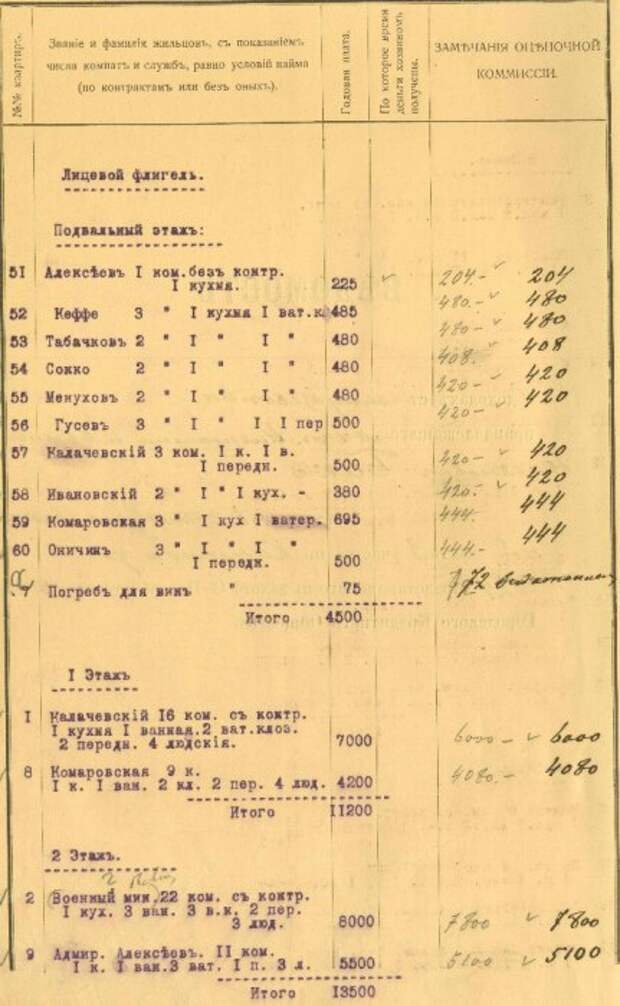 №№ квартиръ.
Званіе и фамиліи жильцовъ, съ показаніемъ
числа комнатъ и службъ, равно условій найма
(по контрактамъ или безъ оныхъ).
Годовая плата.
По которое время
деньги хозяиномъ
получены.
ЗАМѢЧАНІЯ ОЦѢНОЧНОЙ
КОММИССІИ.
Лицевой флигель.
Подвальный этажъ:
51 Алексѣевъ I ком.безъ контр.
I кухня. 225 204.- 204
52 Кеффе 3 " I кухня I ват.к 485 480.- 480
53 Табачковъ 2 " I " I " 480 480- 480
54 Сокко 2 " I " I " 480 408. 408
55 Менуховъ 2 " I " I " 480 420- 420
56 Гусевъ 3 " I " I I пер 500 420- 420
57 Калачевскій 3 ком. I к. I в.
I передн. 500 420- 420
58 Ивановскій 2 " I " I кух. - 380 420.- 420
59 Комаровская 3 " I кух I ватер. 695 444. 444
60 Оничин 3 " I " I "
I передн. 500 444.- 444
Погребъ для винъ " 75 72
Итого 4500
I Этажъ
I Калачевскій 16 ком. съ контр.
I кухня I ванная.2 ват.клоз.
2 передн. 4 людскія. 7000 6000- 6000
8 Комаровская 9 к.
I к. I ван. 2 кл. 2 пер. 4 люд. 4200 4080.- 4080
Итого II200
2 Этажъ.
2 Военный мин.22 ком. съ контр.
I кух. 3 ван. 3 в.к. 2 пер.
3 люд. 8000 7800 7800
9 Адмир. Алексѣевъ. II ком.
I к. I ван.3 ват. I п. 3 л. 5500 5100 5100
Итого I3500